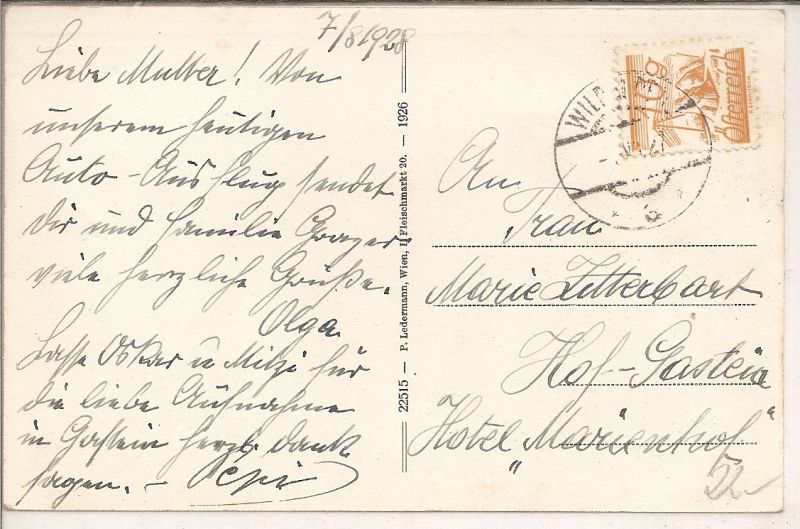 7/8 1928
Liebe Mutter! Von
unserem heutigen
Auto-Ausflug sendet
Dir und Familie Grazer
viele herzliche Grüße.
Olga
Lasse Oskar u Mitzi für
die liebe Aufnahme
in Gastein herzl. dank
sagen. –
22515 – P. Ledermann, Wien, I. Fleischmarkt 20. – 1926
10
Österreich
WILD
6
An
Frau
Marie Zitterbart
Hof-Gastein
Hotel „Marienhof“
52